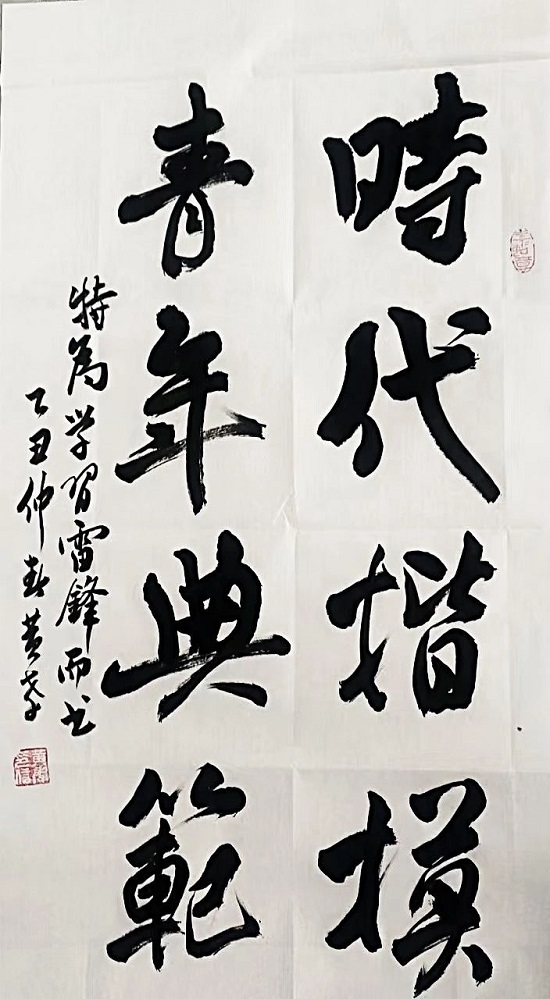 時代楷模
青年典範
特為学習雷鋒而书
乙丑仲春黄孝